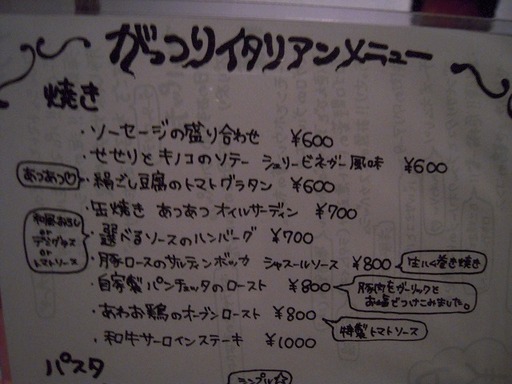 がっつりイタリアンメニュー
焼き
・ソーセージの盛り合わせ ¥600
・せせりとキノコのソテー シェリービネガー風味 ¥600
あつあつ♡
・絹ごし豆腐のトマトグラタン ¥600
・缶焼き あつあつ オイルサーディン ¥700
和風おろし
or
デミグラス
or
トマトソース
・選べるソースのハンバーグ ¥700
・豚ロースのサルティンボッカ シャスールソース ¥800
生ハム巻き焼き
・自家製 パンチェッタのロースト ¥800
豚肉をガーリックと
お塩でつけこみました。
・あわお鶏のオーブンロースト ¥800
特製トマトソース
・和牛サーロインステーキ ¥1000
パスタ